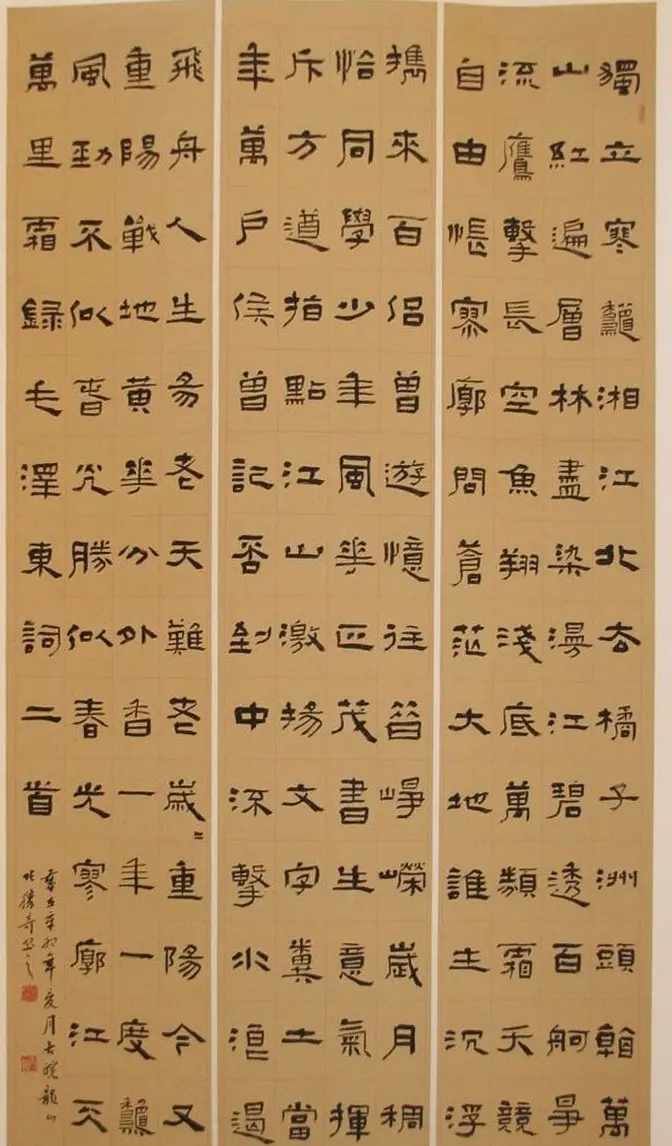 獨立寒龝湘江北去橘子洲頭看萬
山紅遍層林盡染漫江碧透百舸爭
流鷹擊長空魚翔淺底萬類霜天競
自由悵寥廓問蒼茫大地誰主沉浮
攜來百侶曾遊憶往昔崢嶸歲月稠
恰同學少年風華正茂書生意氣揮
斥方遒指點江山激揚文字糞土當
年萬戶侯曾記否到中流擊水浪遏
飛舟人生易老天難老歲〻重陽今又
重陽戰地黃華分外香一年一度龝
風勁不似春光勝似春光寥廓江天
萬里霜錄毛澤東詞二首
歲在辛卯年夏月古皖龍山